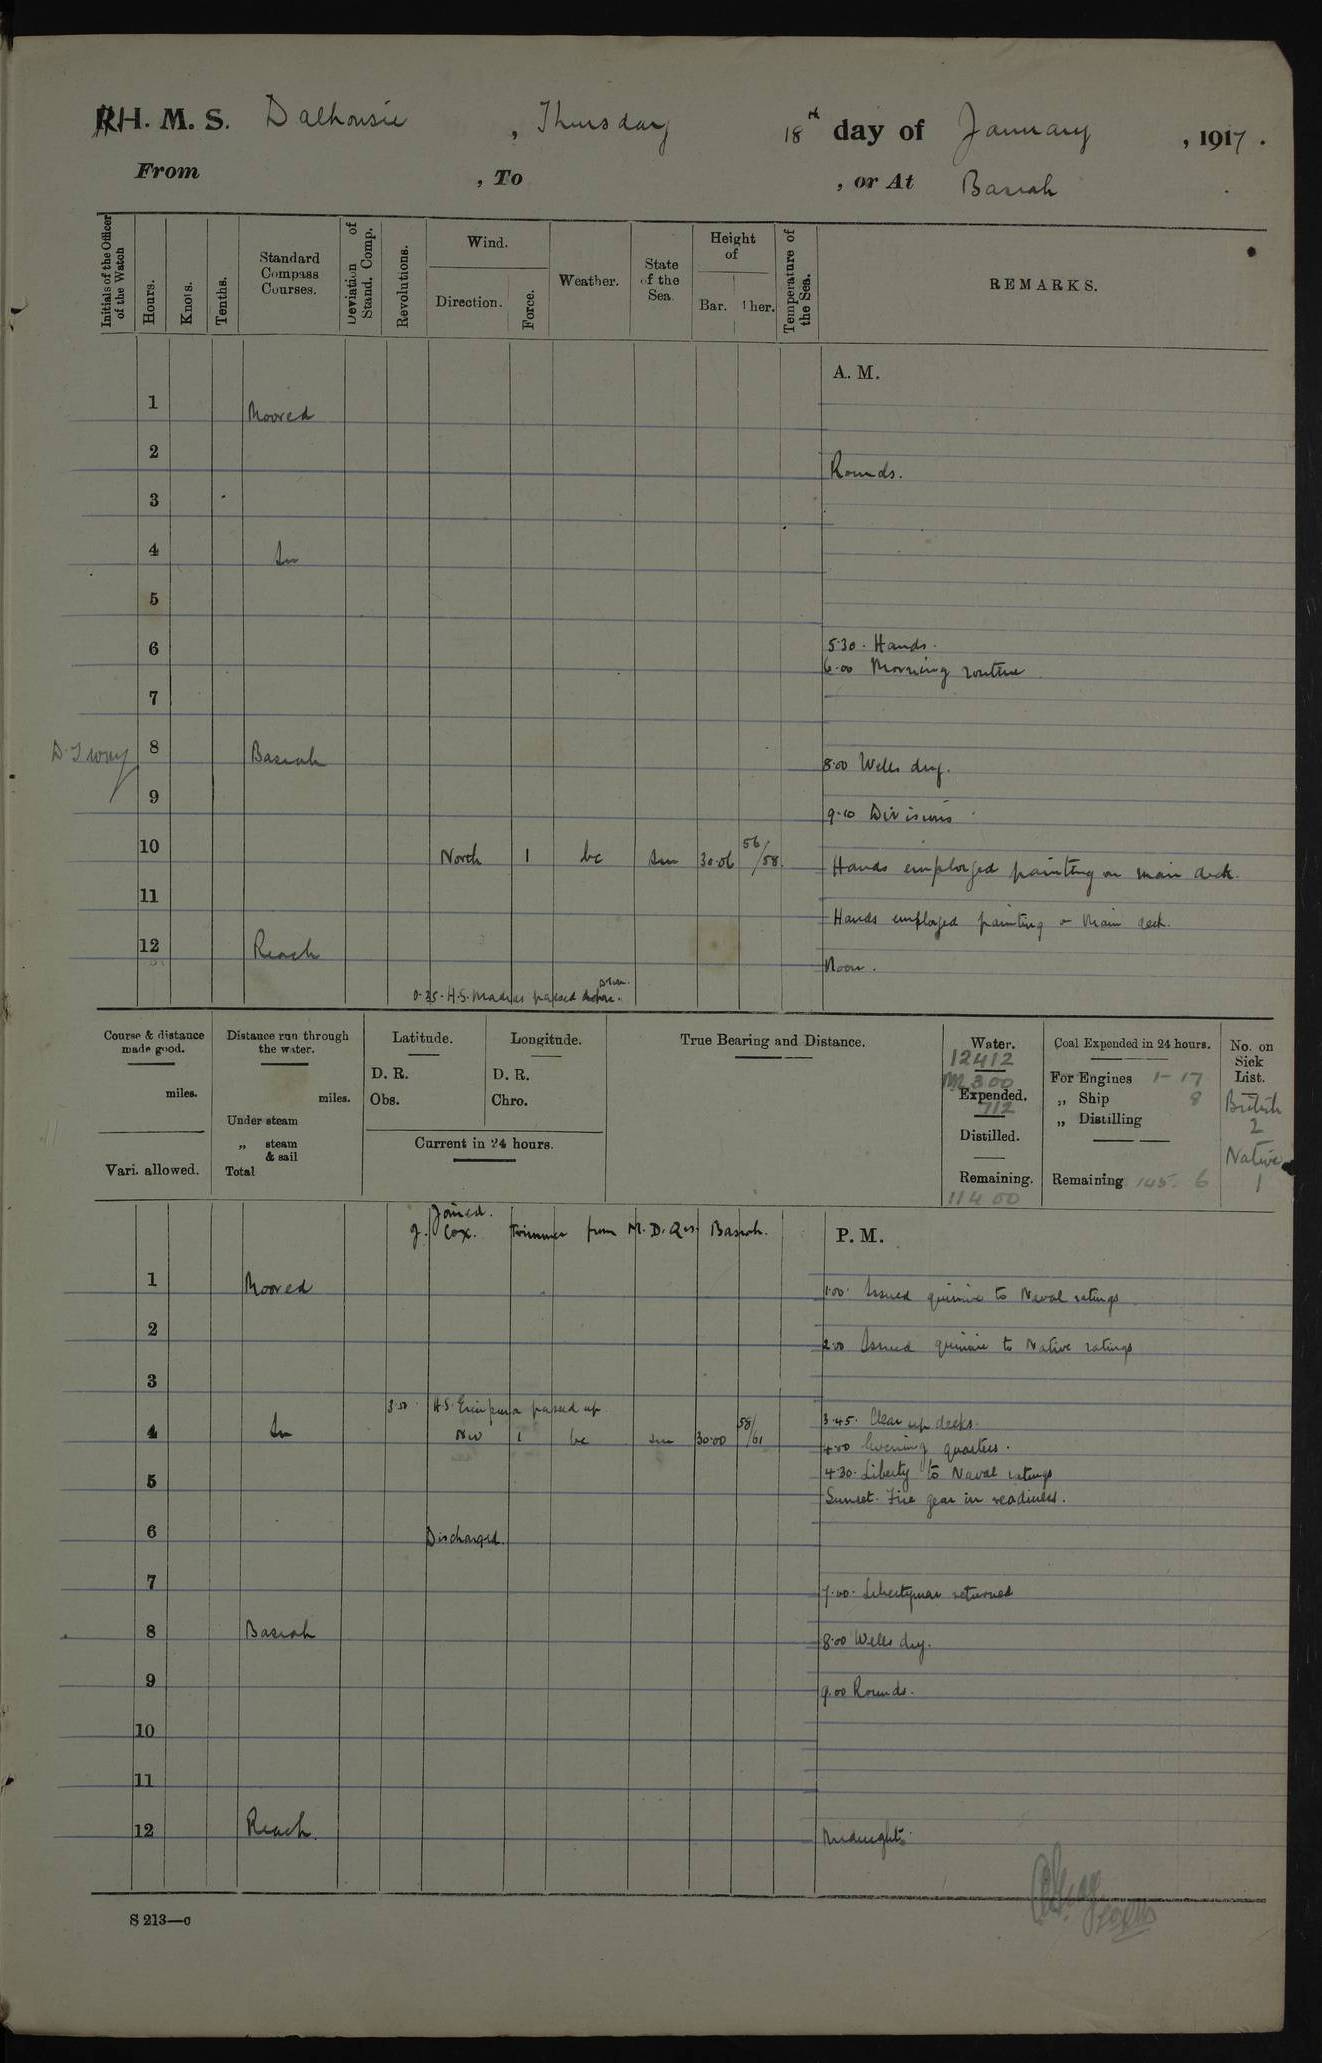 H. M. S. Dalhousie, Thursday 18th day of January, 1917.
From , To , or At Basrah
Initials of the Officer of the Watch
Hours.
Knots.
Tenths.
Standard Compass Courses.
Deviation of Stand. Comp.
Revolutions.
Wind.
Direction.
Force.
Weather.
State of the Sea.
Height of
Bar. Ther.
Temperature of the Sea.
REMARKS.
A. M.
1 Moored
2 Rounds.
3
4 In
5
6 5.30. Hands.
6.00 Morning routine
7
8 Basrah 8.00 Wells dry.
9 9.10 Divisions
10 North 1 bc Sm 30.06 56/58 Hands employed painting on main deck.
11 Hands employed painting on Main deck.
12 Reach Noon.
0.35. H.S. Madras passed down.
Course & distance made good.
miles.
Vari. allowed.
Distance run through the water.
miles.
Under steam
„ steam & sail
Total
Latitude.
D. R.
Obs.
Longitude.
D. R.
Chro.
Current in 24 hours.
True Bearing and Distance.
Water.
12412
300
Expended.
712
Distilled.
Remaining.
11400
Coal Expended in 24 hours.
For Engines 1-17
„ Ship 8
„ Distilling
Remaining 145. 6
No. on Sick List.
British
2
Native
1
Joined.
J. Cox. Trimmer from M. D. Qrs. Basrah.
P. M.
1 Moored 1.00. Issued quinine to Naval ratings
2 2.00 Issued quinine to Native ratings
3
3.50. H.S. Erinpura passed up
3.45. Clear up decks.
4 In NW 1 bc Sm 30.00 58/61 4.00 Evening quarters.
4.30. Liberty to Naval ratings
5 Sunset. Fire gear in readiness.
6 Discharged.
7 7.00. Libertymen returned
8 Basrah 8.00 Wells dry.
9 9.00 Rounds.
10
11
12 Reach. Midnight.
S 213—c